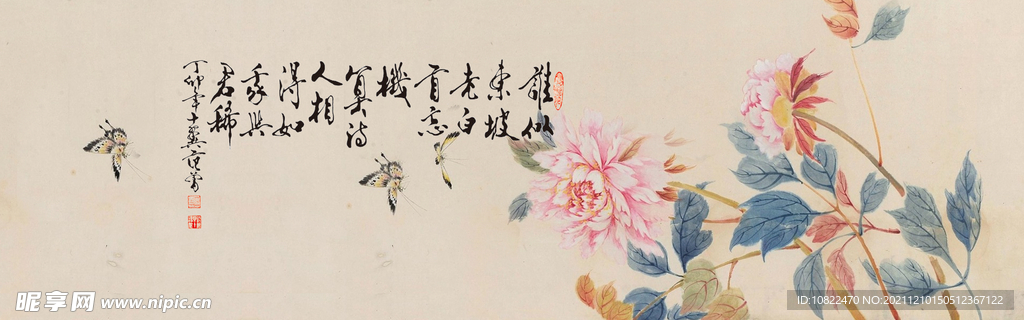 誰似
東坡
老白
首忘
機
算詩
人相
得如
我與
君稀
丁卯年十翼范曾
昵享网 www.nipic.cn
ID:10822470 NO:20211210150512367122